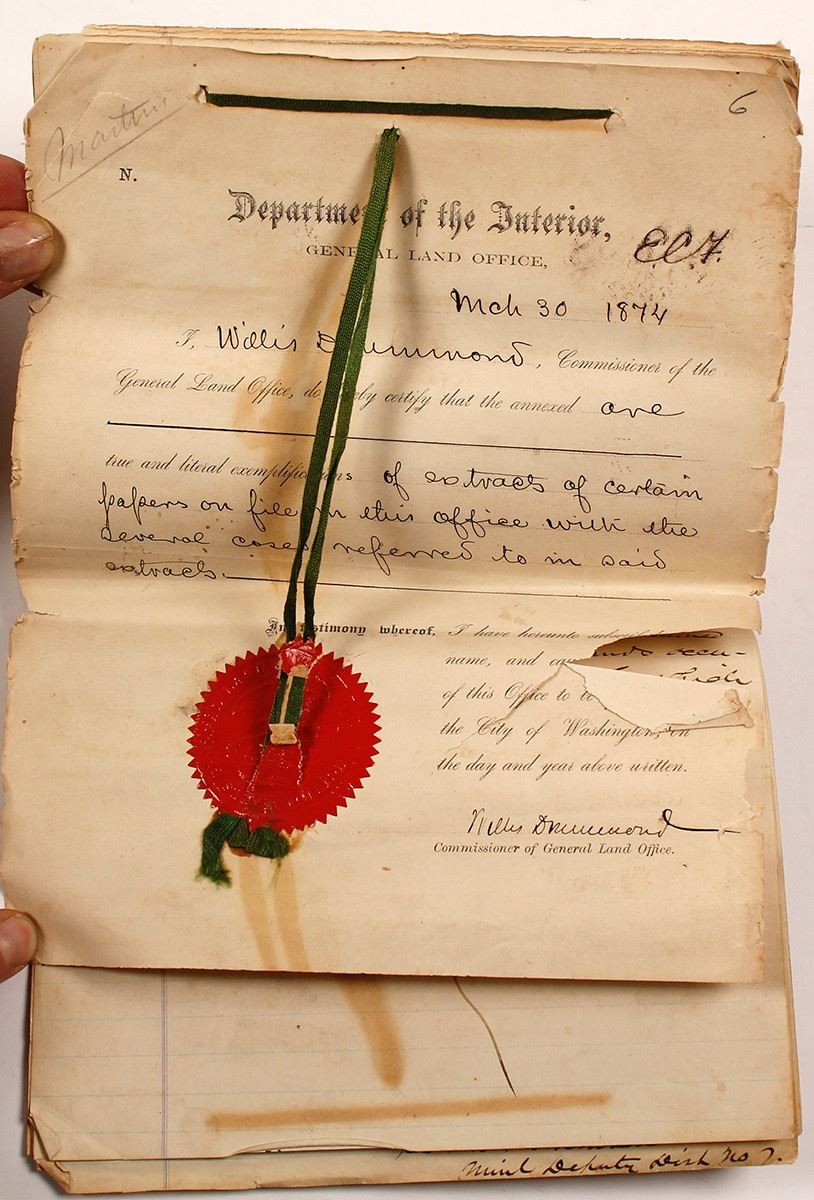 6
Martin
N.
Departme of the Interior,
GENE AL LAND OFFICE,
E.C.F.
Mch 30 1874
I, Willis Drummond, Commissioner of the
General Land Office, do eby certify that the annexed are
true and literal exemplific ns of extracts of certain
papers on file in this office with the
several cases referred to in said
extracts.
In testimony whereof, I have hereunto subscri
name, and cau
of this Office to
the City of Washington, on
the day and year above written.
Willis Drummond
Commissioner of General Land Office.
Deputy Dist No 7.